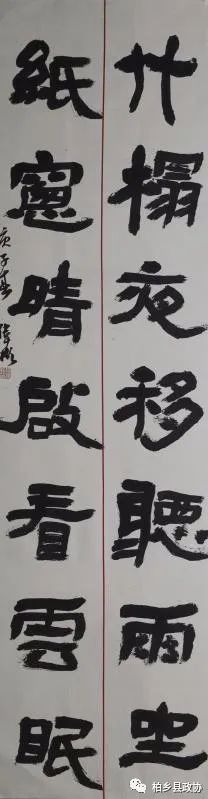 竹榻夜移聽雨坐
紙窻晴啟看雲眠
庚子春
柏乡县政协